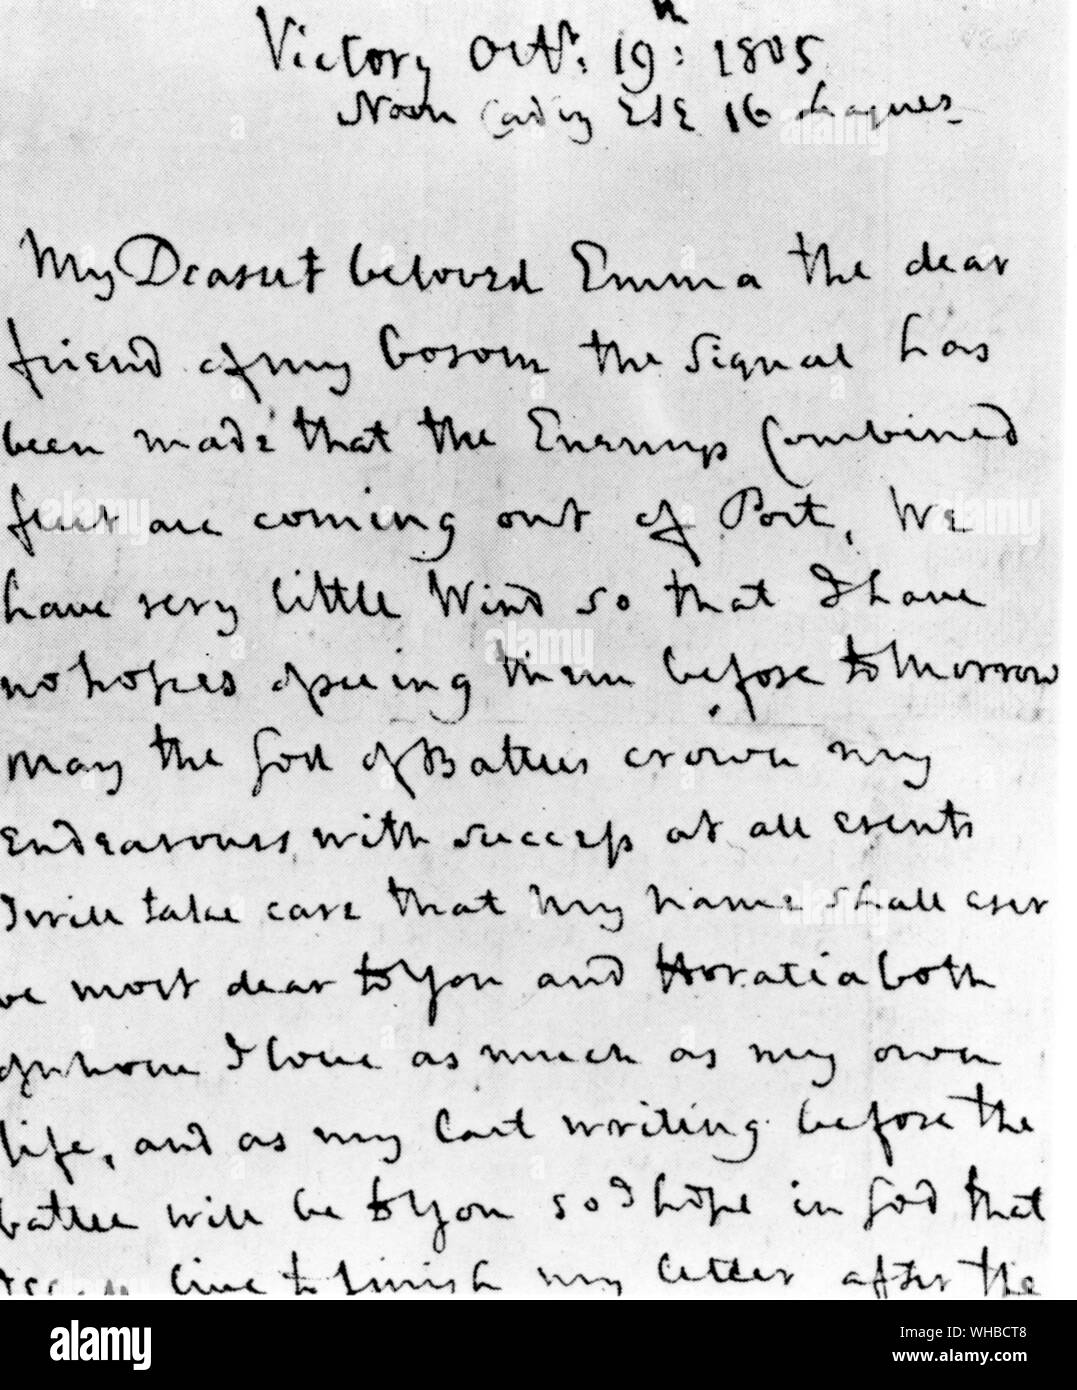 Victory Octr. 19th: 1805
Noon Cadiz ESE 16 Leagues
My Dearest beloved Emma the dear
friend of my bosom the Signal has
been made that the Enemys Combined
fleet are coming out of Port, We
have very little Wind so that I have
no hopes of seeing them before tomorrow
May the God of Battles crown my
Endeavours with success at all events
I will take care that my name shall ever
be most dear to You and Horatia both
of whom I love as much as my own
life, and as my last writing before the
battle will be to You so I hope in God that
live to finish my letter after the
alamy
Image ID: WHBCT8
www.alamy.com